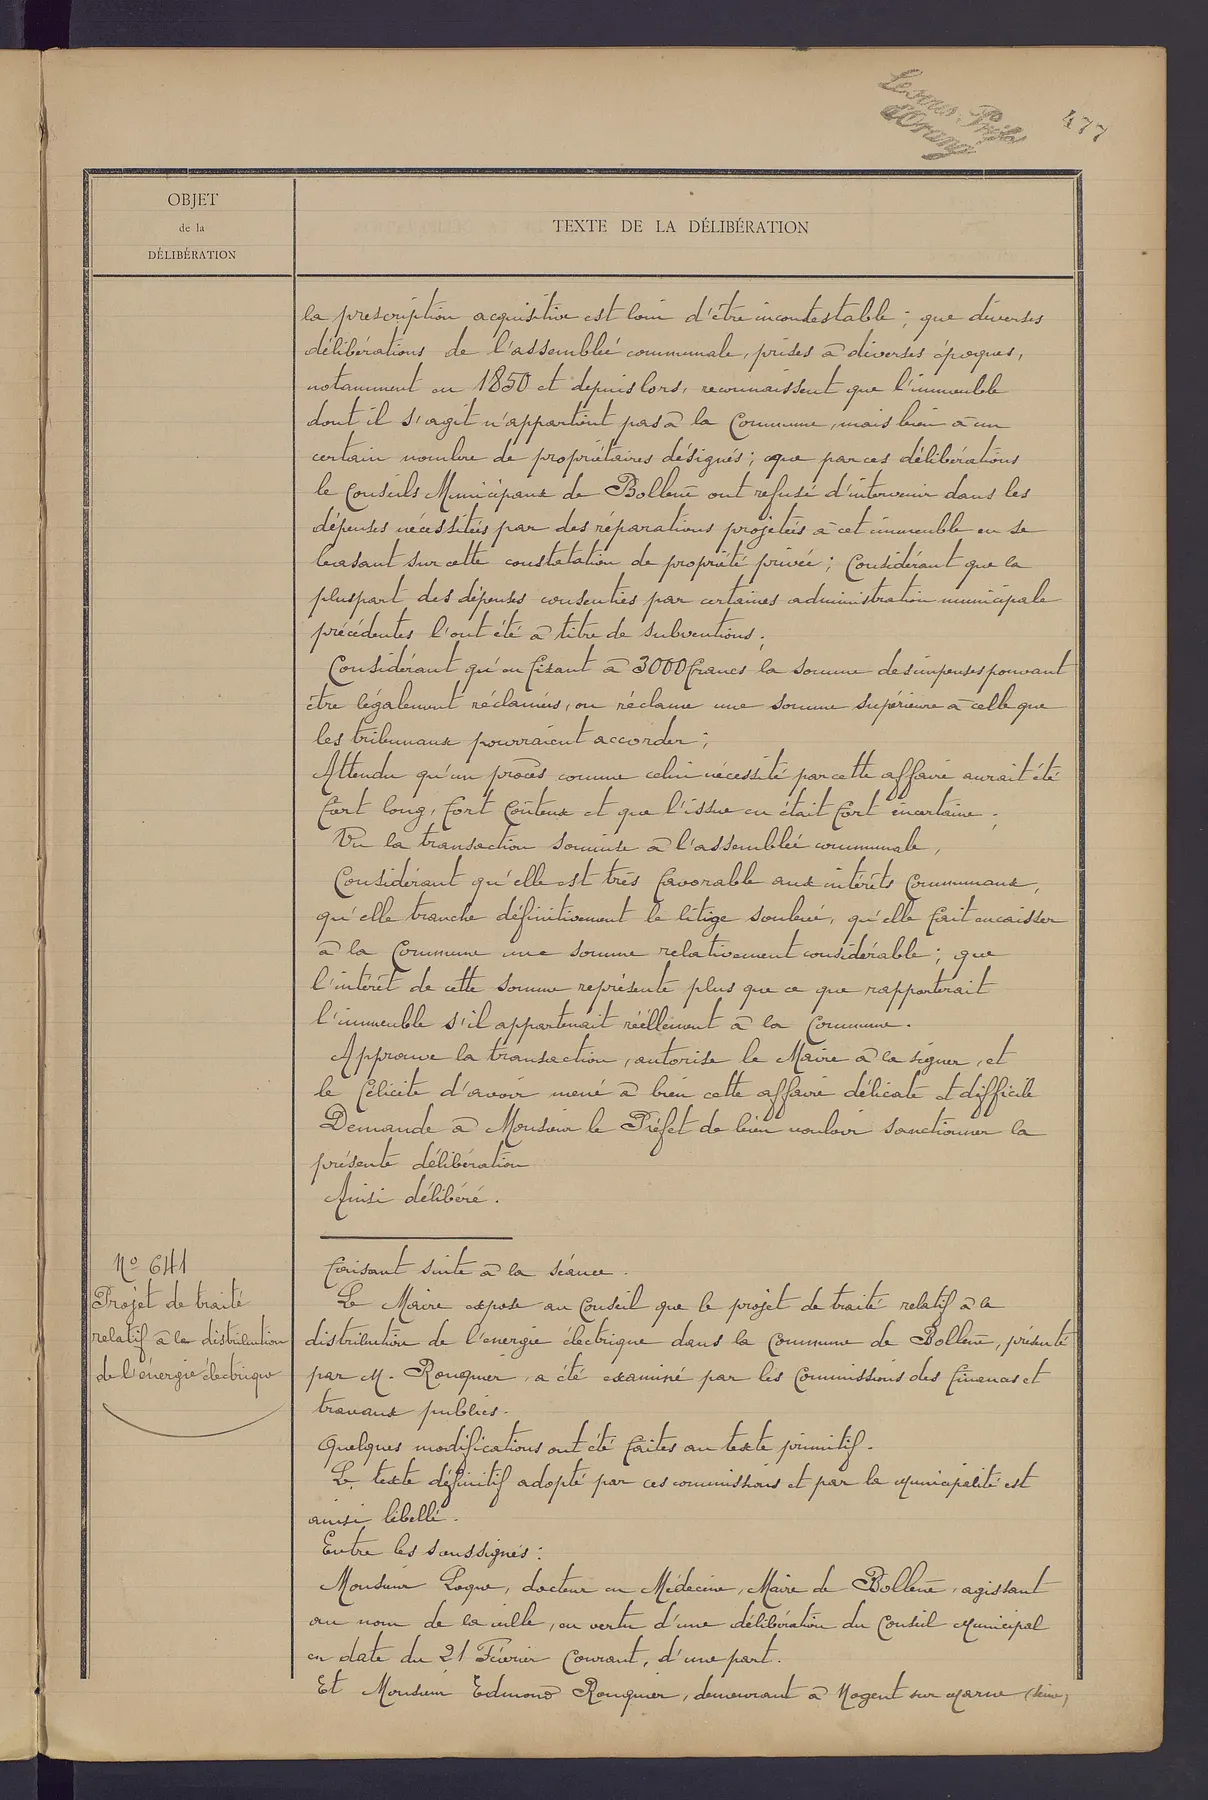 Le sous-Préfet
d'Orange
477
OBJET
de la
DÉLIBÉRATION
TEXTE DE LA DÉLIBÉRATION
la prescription acquisitive est loin d'être incontestable ; que diverses
délibérations de l'assemblée communale, prises à diverses époques,
notamment en 1850 et depuis lors, reconnaissent que l'immeuble
dont il s'agit n'appartient pas à la Commune, mais bien à un
certain nombre de propriétaires désignés ; que par ces délibérations
le Conseils Municipaux de Bollène ont refusé d'intervenir dans les
dépenses nécessitées par des réparations projetées à cet immeuble en se
basant sur cette constatation de propriété privée ; Considérant que la
pluspart des dépenses consenties par certaines administration municipale
précédentes l'ont été à titre de subventions ;
Considérant qu'en fixant à 3000 francs la somme des impenses pouvant
être légalement réclamées, on réclame une somme supérieure à celle que
les tribunaux pourraient accorder ;
Attendu qu'un procès comme celui nécessité par cette affaire aurait été
fort long, fort coûteux et que l'issue en était fort incertaine ;
Vu la transaction soumise à l'assemblée communale,
Considérant qu'elle est très favorable aux intérêts Communaux,
qu'elle tranche définitivement le litige soulevé, qu'elle fait encaisser
à la Commune une somme relativement considérable ; que
l'intérêt de cette somme représente plus que ce que rapporterait
l'immeuble s'il appartenait réellement à la Commune.
Approuve la transaction, autorise le Maire à la signer, et
le félicite d'avoir mené à bien cette affaire délicate et difficile
Demande à Monsieur le Préfet de bien vouloir sanctionner la
présente délibération
Ainsi délibéré.
No 641
Projet de traité
relatif à la distribution
de l'énergie électrique
Faisant suite à la séance.
Le Maire expose au Conseil que le projet de traité relatif à la
distribution de l'énergie électrique dans la Commune de Bollène, présenté
par M. Rouquier, a été examiné par les Commissions des finances et
travaux publics.
Quelques modifications ont été faites au texte primitif.
Le texte définitif adopté par ces commissions et par la Municipalité est
ainsi libellé.
Entre les soussignés :
Monsieur Loque, docteur en Médecine, Maire de Bollène, agissant
au nom de la ville, en vertu d'une délibération du Conseil Municipal
en date du 21 Février Courant, d'une part.
Et Monsieur Edmond Rouquier, demeurant à Nogent sur Marne (Seine)